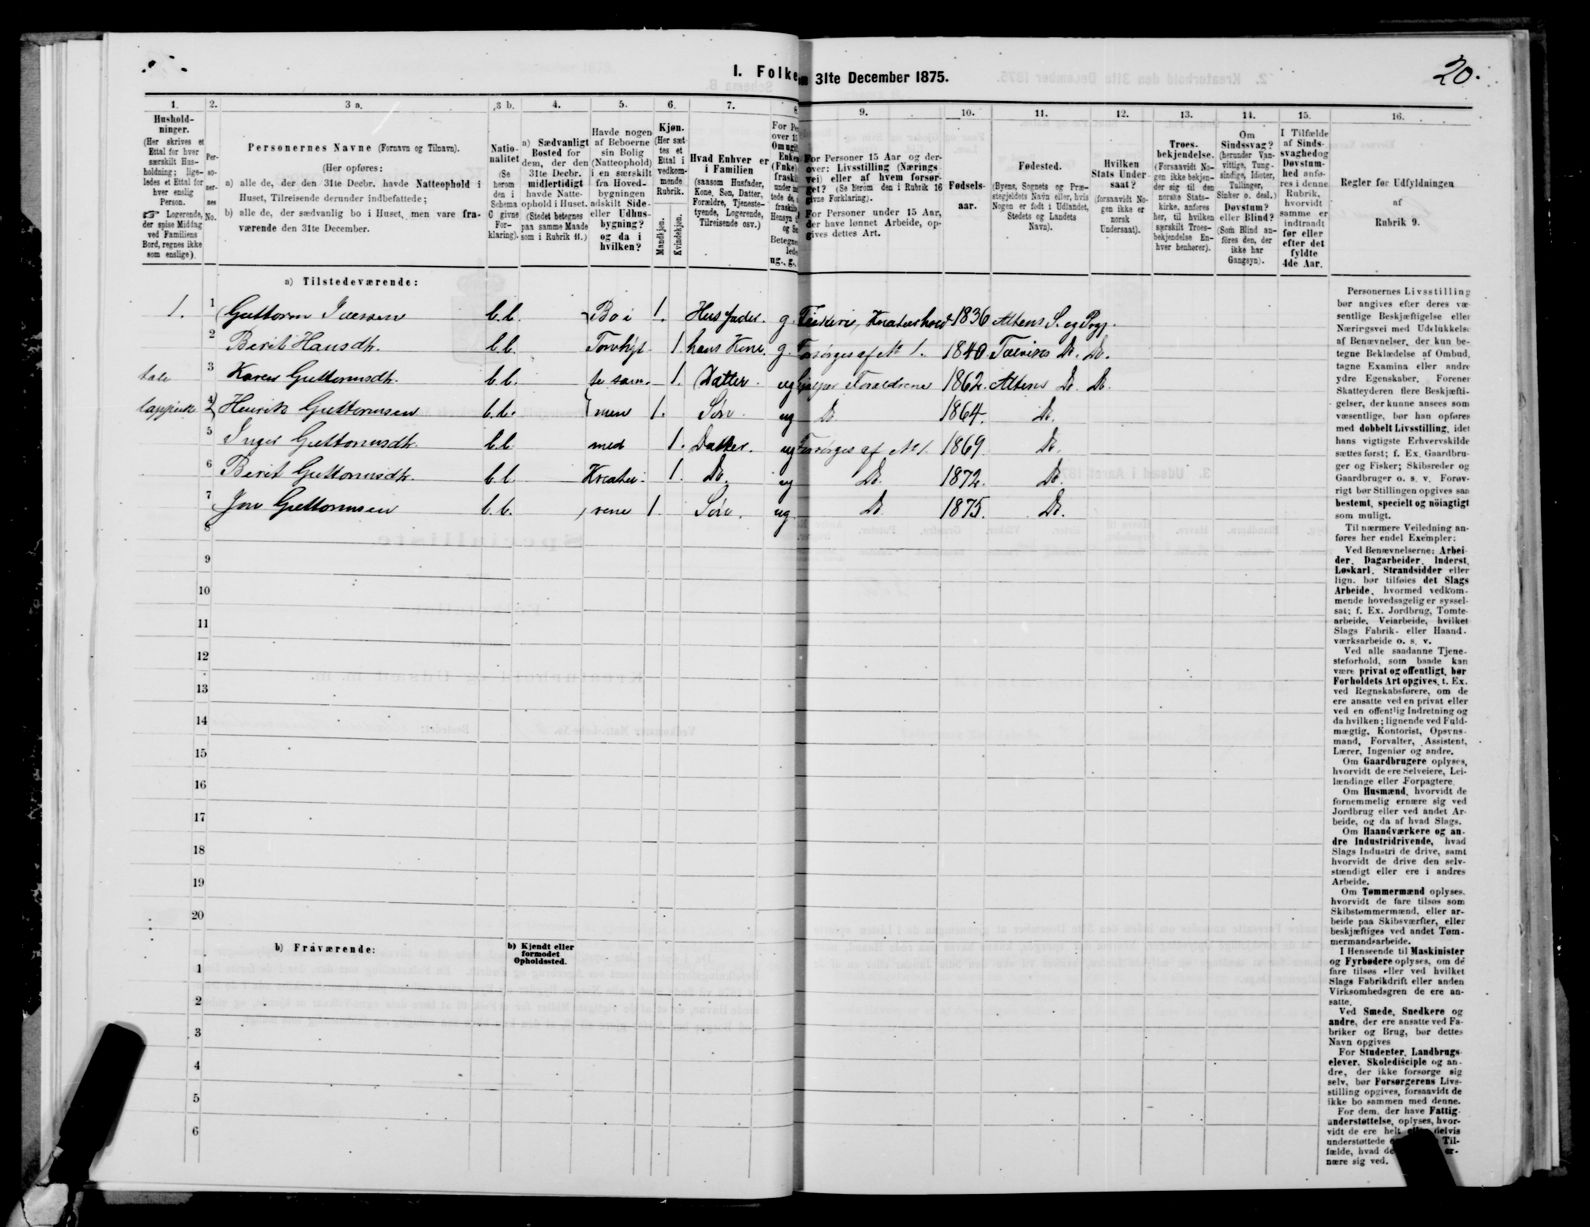 I. Folke
m 31te December 1875.
20.
1.
2.
3 a.
3 b.
4.
5.
6.
7.
8.
9.
10.
11.
12.
13.
14.
15.
16.
Hushold-
ninger.
(Her skrives et
Ettal for hver
særskilt Hus-
holdning; lige-
ledes et Ettal for
hver enslig
Person.
☞ Logerende,
der spise Middag
ved Familiens
Bord, regnes ikke
som enslige).
Per-
so-
ner-
nes
No.
Personernes Navne (Fornavn og Tilnavn).
(Her opføres:
a) alle de, der den 31te Decbr. havde Natteophold i
Huset, Tilreisende derunder indbefattede;
b) alle de, der sædvanlig bo i Huset, men vare fra-
værende den 31te December.
Natio-
nalitet
(Se
herom
den i
Schema
6 givne
For-
klaring).
a) Sædvanligt
Bosted for
dem, der den
31te Decbr.
midlertidigt
havde Natte-
ophold i Huset.
(Stedet betegnes
paa samme Maade
som i Rubrik 11.)
Havde nogen
af Beboerne
sin Bolig
(Natteophold)
i en særskilt
fra Hoved-
bygningen
adskilt Side-
eller Udhus-
bygning?
og da i
hvilken?
Kjøn.
(Her sæt-
tes et
Ettal i
vedkom-
mende
Rubrik.
Mandkjøn.
Kvindekjøn.
Hvad Enhver er
i Familien
(saasom Husfader,
Kone, Søn, Datter,
Forældre, Tjeneste-
tyende, Logerende,
Tilreisende osv.)
For Personer 15 Aar og der-
over: Livsstilling (Nærings-
vei) eller af hvem forsør-
get? (Se herom den i Rubrik 16
givne Forklaring).
For Personer under 15 Aar,
der have lønnet Arbeide, op-
gives dettes Art.
Fødsels-
aar.
Fødested.
(Byens, Sognets og Præ-
stegjeldets Navn eller, hvis
Nogen er født i Udlandet,
Stedets og Landets
Navn).
Hvilken
Stats Under-
saat?
(forsaavidt No-
gen ikke er
norsk
Undersaat).
Troes-
bekjendelse.
(Forsaavidt No-
gen ikke bekjen-
der sig til den
norske Stats-
kirke, anføres
her, til hvilken
særskilt Troes-
bekjendelse En-
hver henhører).
Om
Sindssvag?
(herunder Van-
vittige, Tung-
sindige, Idioter,
Tullinger,
Sinker o. desl.)
Døvstum?
eller Blind?
(Som Blind an-
føres den, der
ikke har
Gangsyn).
I Tilfælde
af Sinds-
svaghed og
Døvstum-
hed anfø-
res i denne
Rubrik,
hvorvidt
samme er
indtraadt
før eller
efter det
fyldte
4de Aar.
Regler for Udfyldningen
af
Rubrik 9.
a) Tilstedeværende:
1. 1 Guttorm b.b. Bo i 1. Husfader. g. Fiskeri, Kreaturhold 1836 Altens S. og Prgj.
2 Berit Hansdt. b.b. 1 hans Kone. g. Forsørges af No 1. 1840 Talviges Do. Do.
3 Karen Guttormsdt. b.b. 1. Datter. ug Forældrene 1862. Altens Do. Do.
4 Henrik Guttormsen b.b. 1. Søn. ug Do 1864. Do.
5 Inger Guttormsdt. b.b. med 1. Datter. ug Forsørges af No 1. 1869. Do.
6 Berit Guttormsdt. b.b. 1. Do. ug Do. 1872. Do.
7 Jon Guttormsen b.b. rene 1. Søn. ug Do 1875. Do.
8
9
10
11
12
13
14
15
16
17
18
19
20
b) Fraværende:
b) Kjendt eller
formodet
Opholdssted.
1
2
3
4
5
6
Personernes Livsstilling
bør angives efter deres væ-
sentlige Beskjæftigelse eller
Næringsvei med Udelukkelse
af Benævnelser, der kun be-
tegne Beklædelse af Ombud,
tagne Examina eller andre
ydre Egenskaber. Forener
Skatteyderen flere Beskjæfti-
gelser, der kunne ansees som
væsentlige, bør han opføres
med dobbelt Livsstilling, idet
hans vigtigste Erhvervskilde
sættes først; f. Ex. Gaardbru-
ger og Fisker; Skibsreder og
Gaardbruger o. s. v. Forøv-
rigt bør Stillingen opgives saa
bestemt, specielt og nöiagtigt
som muligt.
Til nærmere Veiledning an-
føres her endel Exempler:
Ved Benævnelserne: Arbei-
der, Dagarbeider, Inderst,
Løskarl, Strandsidder eller
lign. bør tilføies det Slags
Arbeide, hvormed vedkom-
mende hovedsagelig er syssel-
sat; f. Ex. Jordbrug, Tomte-
arbeide, Veiarbeide, hvilket
Slags Fabrik- eller Haand-
værksarbeide o. s. v.
Ved alle saadanne Tjene-
steforhold, som baade kan
være privat og offentligt, bør
Forholdets Art opgives, t. Ex.
ved Regnskabsførere, om de
ere ansatte ved en privat eller
ved en offentlig Indretning og
da hvilken; lignende ved Fuld-
mægtig, Kontorist, Opsyns-
mand, Forvalter, Assistent,
Lærer, Ingeniør og andre.
Om Gaardbrugere oplyses,
hvorvidt de ere Selveiere, Lei-
lændinge eller Forpagtere.
Om Husmænd, hvorvidt de
fornemmelig ernære sig ved
Jordbrug eller ved andet Ar-
beide, og da af hvad Slags.
Om Haandværkere og an-
dre Industridrivende, hvad
Slags Industri de drive, samt
hvorvidt de drive den selv-
stændigt eller ere i andres
Arbeide.
Om Tømmermænd oplyses,
hvorvidt de fare tilsøs som
Skibstømmermænd, eller ar-
beide paa Skibsværfter, eller
beskjæftiges ved andet Tøm-
mermandsarbeide.
I Henseende til Maskinister
og Fyrbødere oplyses, om de
fare tilsøs eller ved hvilket
Slags Fabrikdrift eller anden
Virksomhedsgren de ere an-
satte.
Ved Smede, Snedkere og
andre, der ere ansatte ved Fa-
briker og Brug, bør dettes
Navn opgives
For Studenter, Landbrugs-
elever, Skoledisciple og an-
dre, der ikke forsørge sig
selv, bør Forsørgerens Livs-
stilling opgives, forsaavidt de
ikke bo sammen med denne.
For dem, der have Fattig-
understøttelse, oplyses, hvor-
vidt de ere helt eller delvis
understøttede Til-
fælde, hvad de er-
nære sig ved.